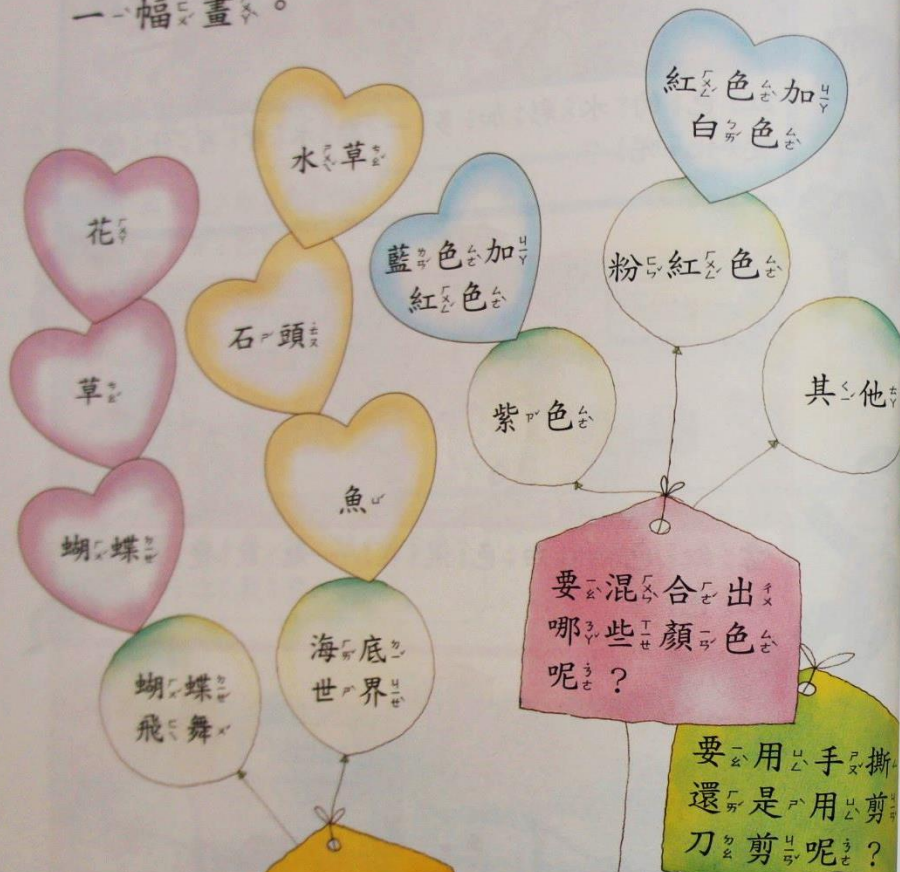 一幅畫。
花
草
蝴蝶
蝴蝶
飛舞
水草
石頭
魚
海底
世界
藍色加
紅色
紫色
紅色加
白色
粉紅色
其他
要混合出
哪些顏色
呢？
要用手撕
還是用剪
刀剪呢？